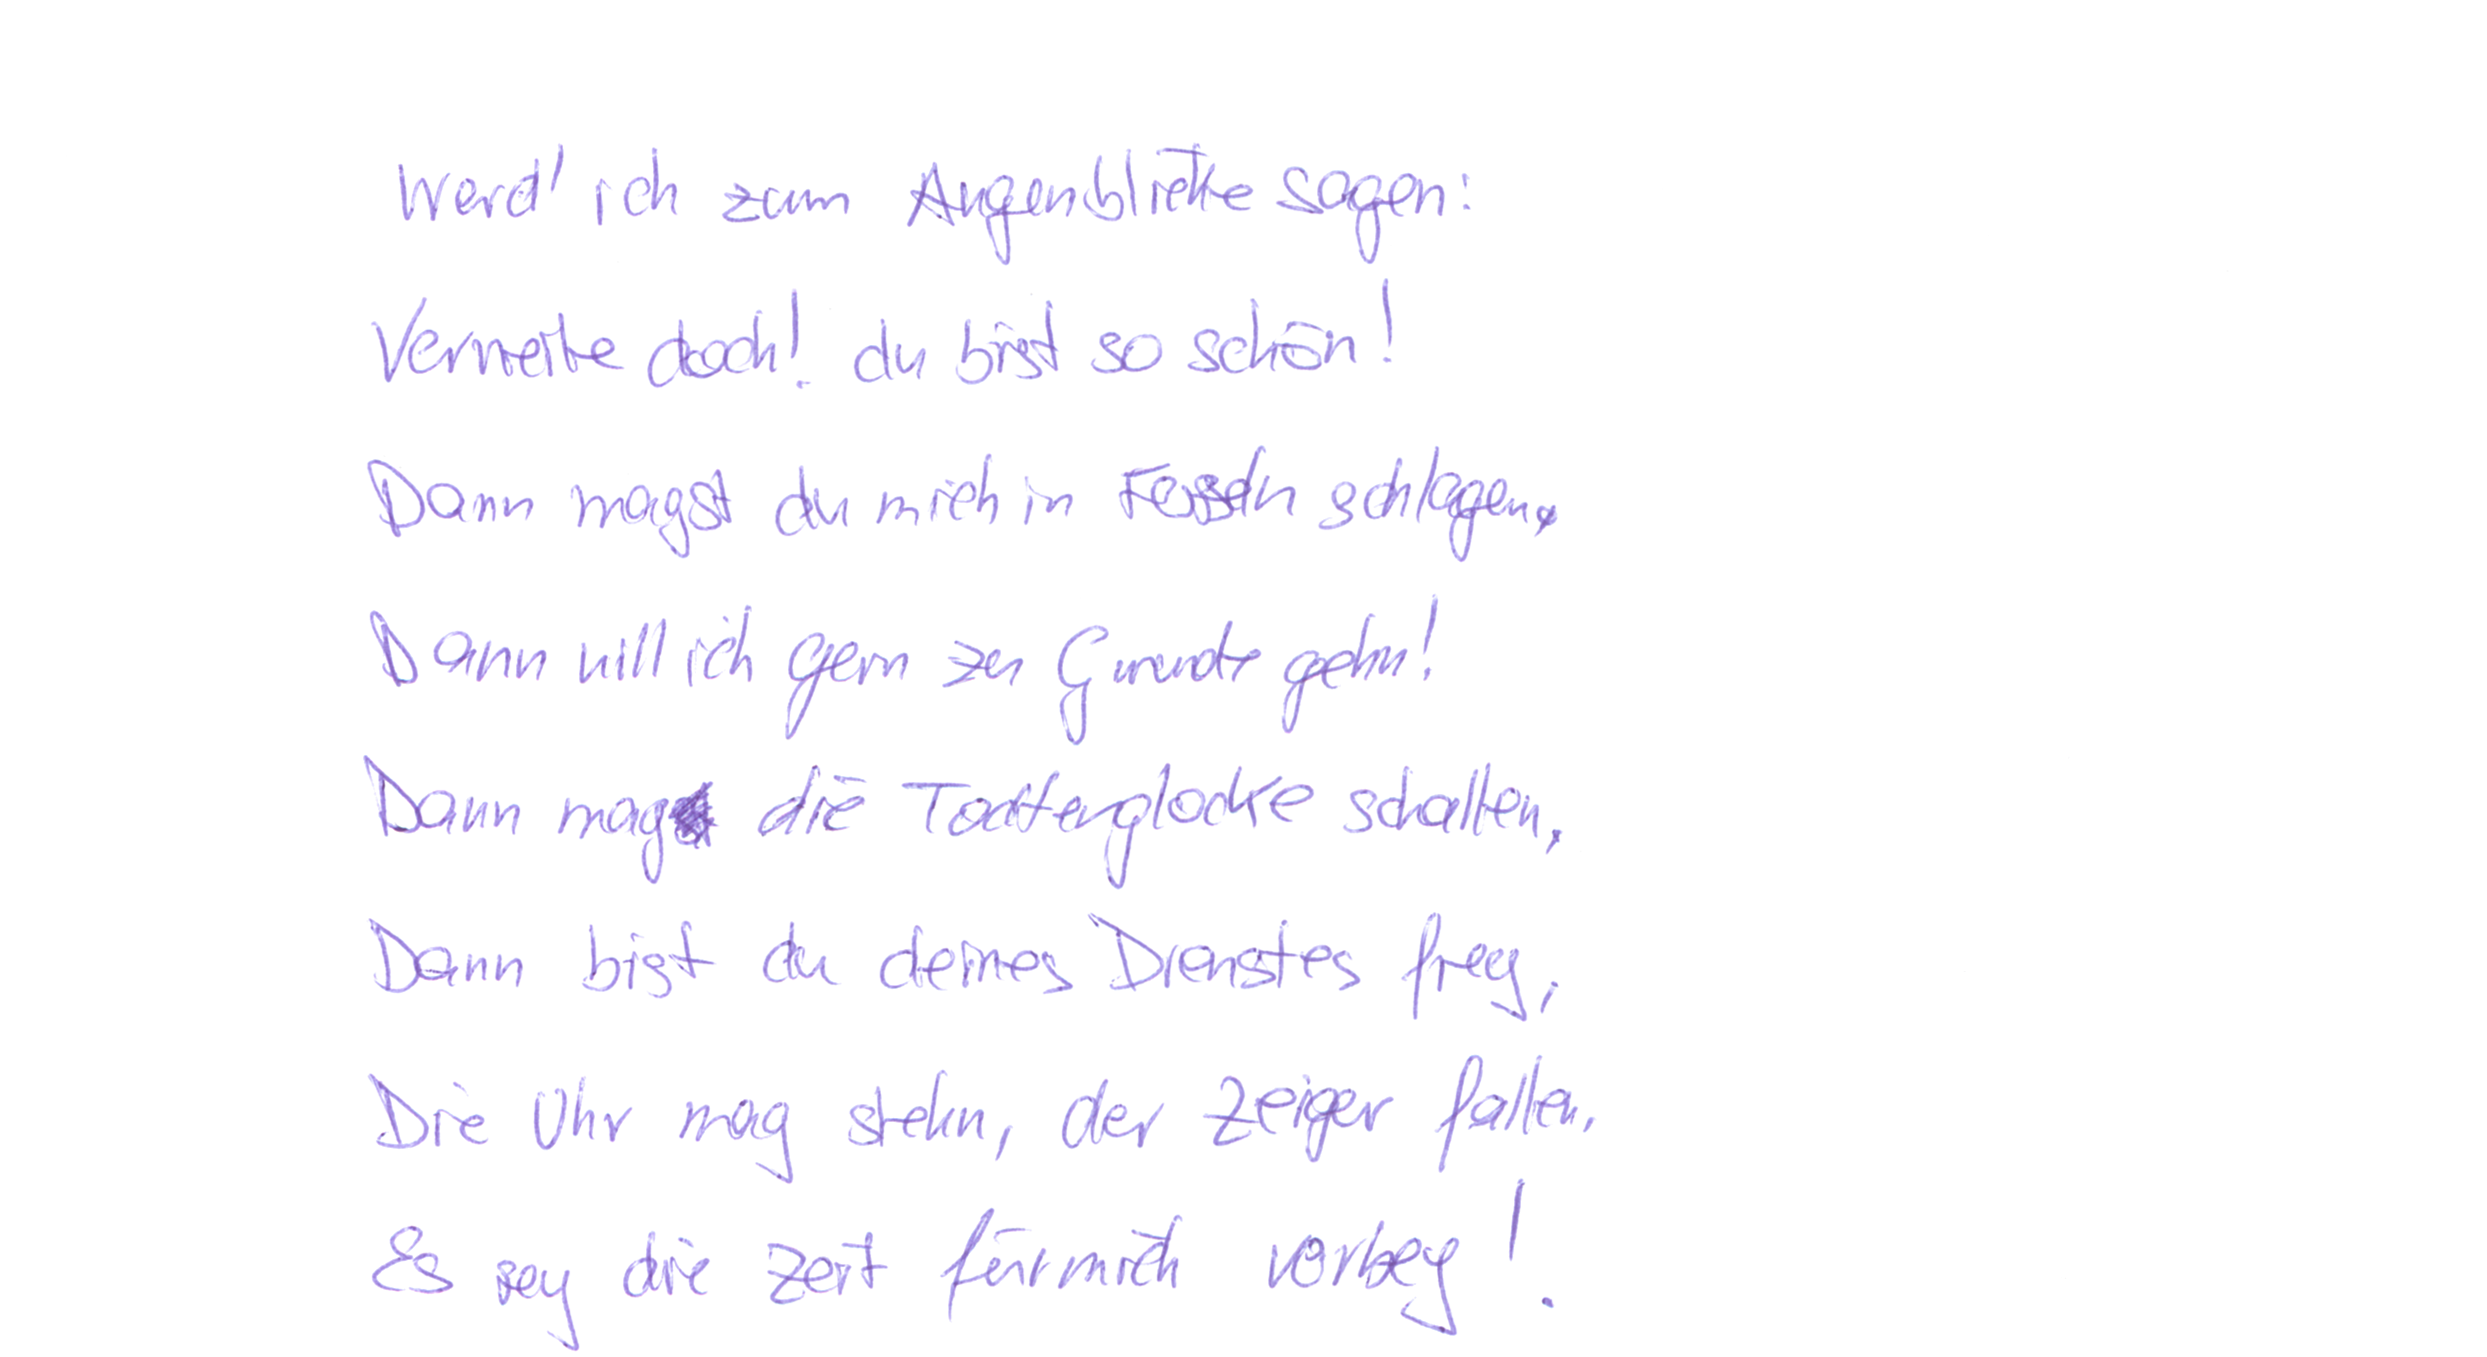 Werd' ich zum Augenblicke sagen:
Verweile doch! du bist so schön!
Dann magst du mich in Fesseln schlagen,
Dann will ich gern zu Grunde gehn!
Dann mag die Todtenglocke schallen,
Dann bist du deines Dienstes frey,
Die Uhr mag stehn, der Zeiger fallen,
Es sey die Zeit für mich vorbey!